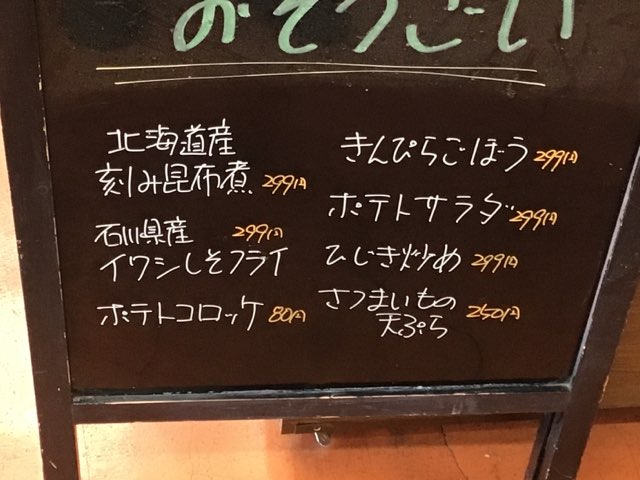 おそうざい
北海道産
刻み昆布煮 299円
石川県産 299円
イワシしそフライ
ポテトコロッケ 80円
きんぴらごぼう 299円
ポテトサラダ 299円
ひじき炒め 299円
さつまいもの
天ぷら 250円